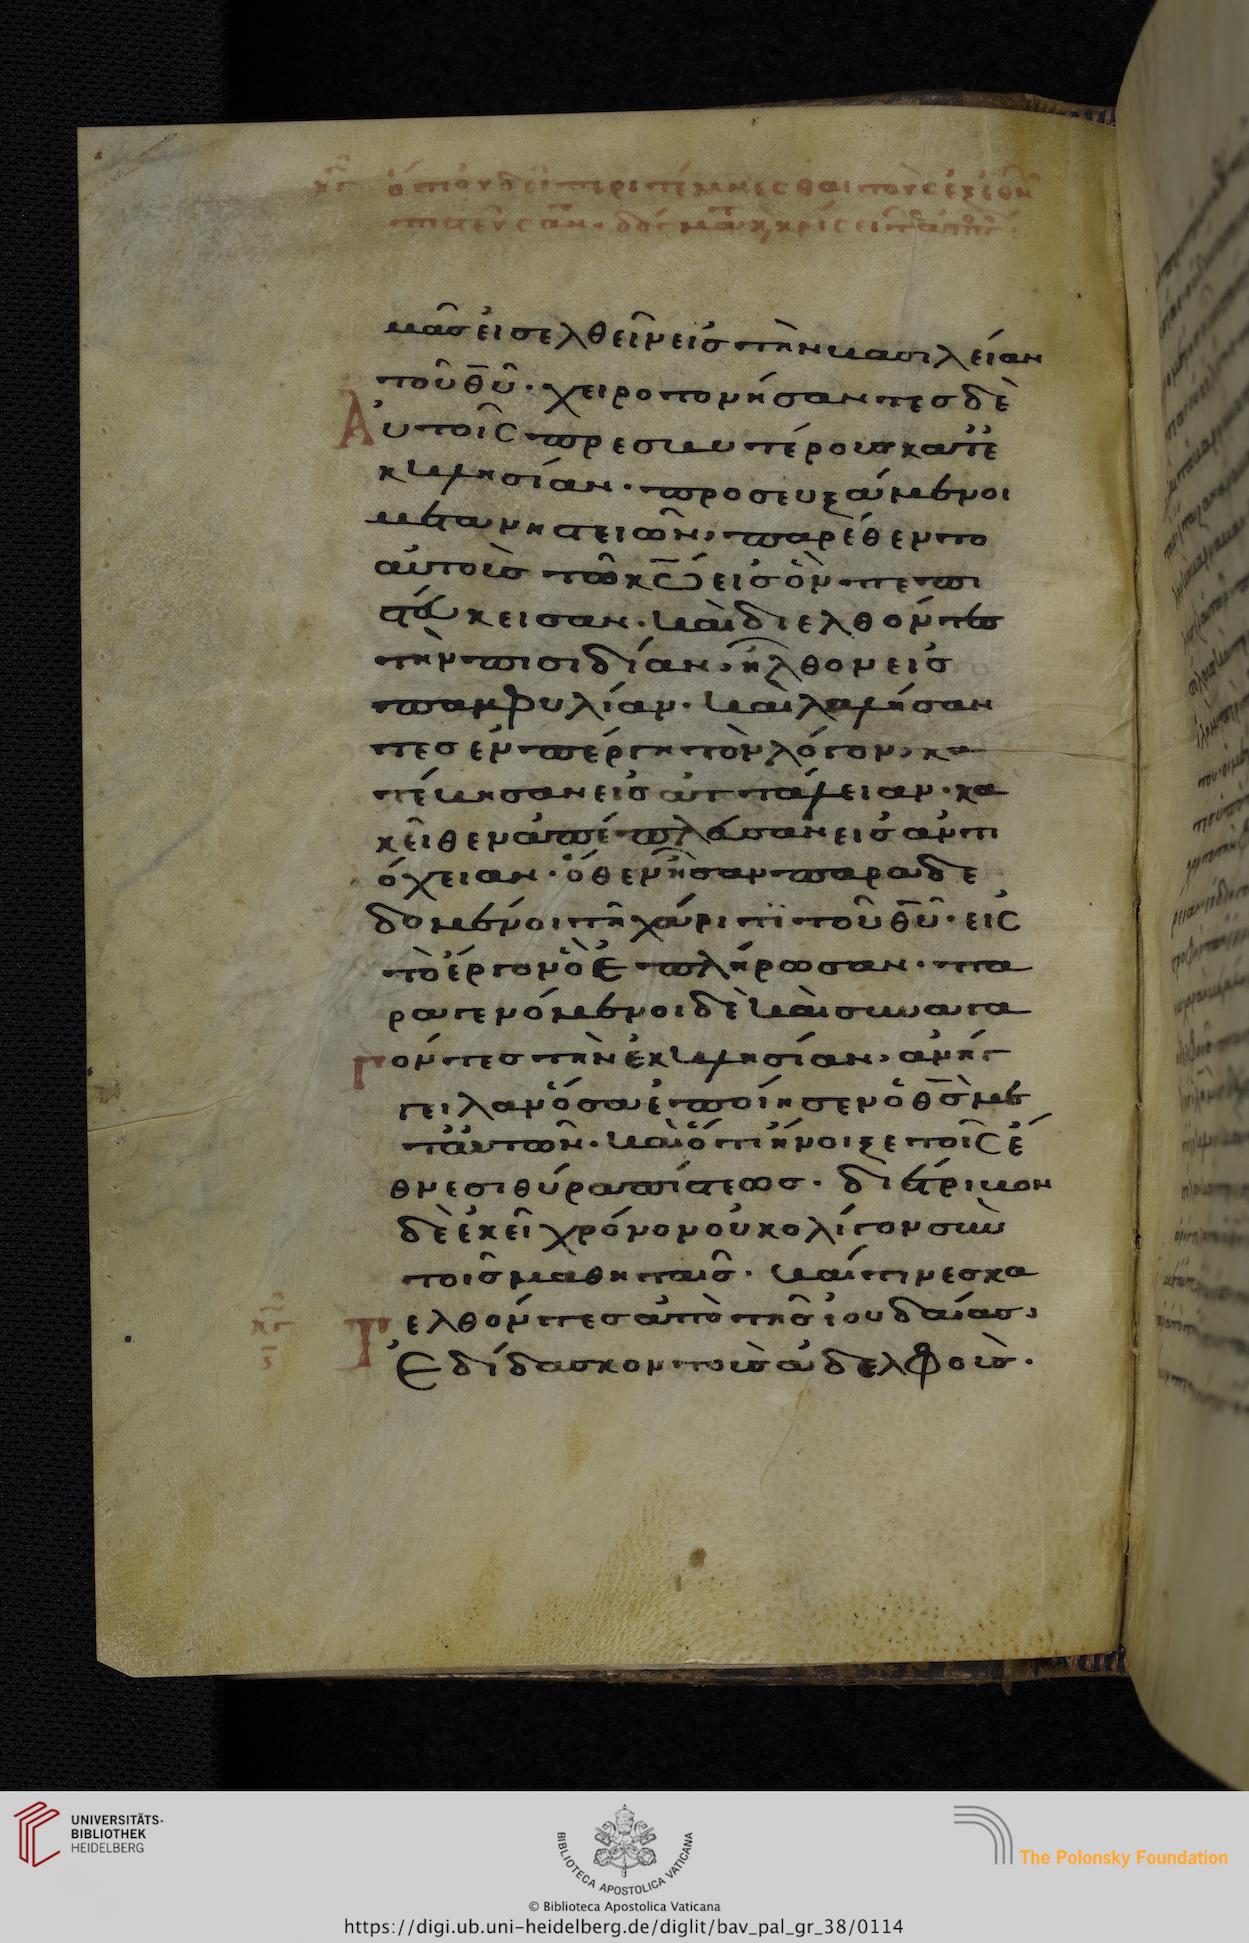 ὁτι οὐ δεῖ περιτέμνεσθαι τοὺς ἐξ ἐθνῶ
πιστεύσαν· δόγμα κ κρίσει τ ἀποστ
μᾶς εἰσελθεῖν εἰς τὴν βασιλείαν
τοῦ θῦ· χειροτονήσαντες δὲ
Αὐτοῖς πρεσβυτέρους κατ ἐ
κκλησίαν· προσευξάμενοι
μετα νηστειῶν, παρέθεντο
αὐτοὺς τῶ κω εἰς ὃν πεπι
στεύκεισαν· καὶ διελθόντες
τὴν πισιδίαν, ἦλθον εἰς
παμφυλίαν· καὶ λαλήσαν
τες ἐν πέργη τὸν λόγον, κα
τέβησαν εἰς ἀττάλειαν· κα
κεῖθεν ἀπέπλευσαν εἰς ἀντι
όχειαν· ὅθεν ἦσαν παραδε
δομένοι τῆ χάριτϊ τοῦ θῦ· εἰς
τὸ ἔργον ὃ ἐπλήρωσαν· πα
ραγενόμενοι δὲ καὶ συναγα
Γόντες τὴν ἐκκλησίαν, ἀνήγ
γειλαν ὅσα ἐποίησεν ὁ θς μετ
αὐτῶν· καὶ ὅτι ἤνοιξε τοῖς ἔ
θνεσι θύραν πίστεως· διέτριβον
δὲ ἐκεῖ χρόνον οὐκ ὀλίγον σὺν
τοῖς μαθηταῖς· καί τινες κα
Τελθόντες ἀπὸ τῆς ἰουδαίας,
Ἐδίδασκον τοὺς ἀδελφοὺς·
UNIVERSITÄTS-
BIBLIOTHEK
HEIDELBERG
BIBLIOTECA APOSTOLICA VATICANA
The Polonsky Foundation
© Biblioteca Apostolica Vaticana
https://digi.ub.uni-heidelberg.de/diglit/bav_pal_gr_38/0114